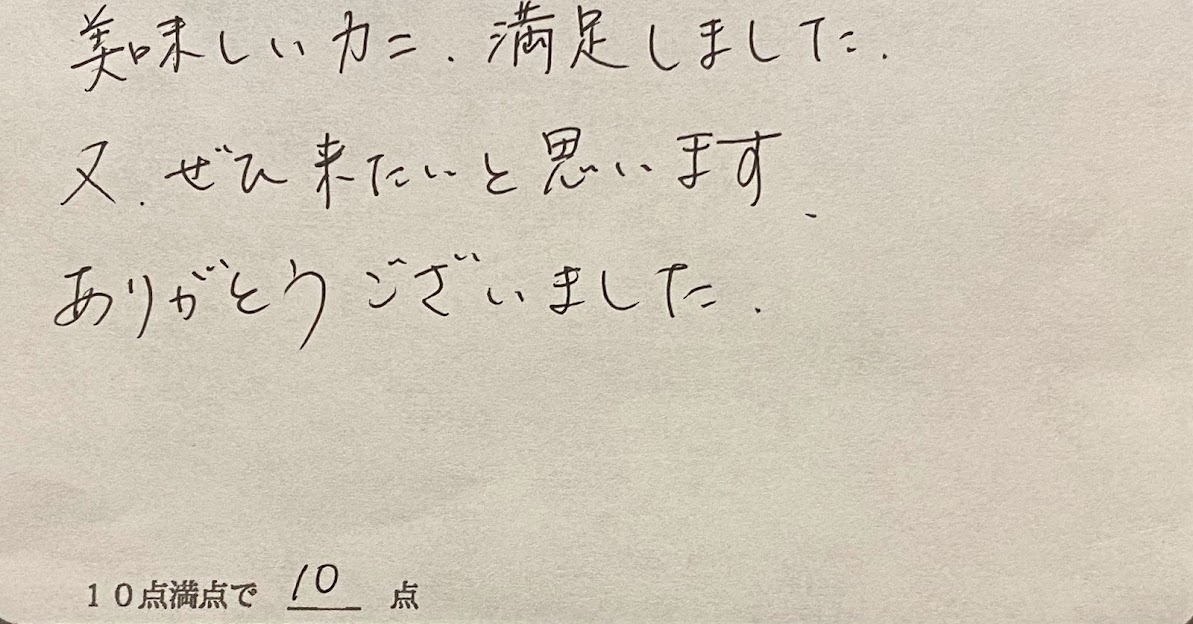 美味しいカニ.満足しました.
又.ぜひ来たいと思います.
ありがとうございました.
１０点満点で 10 点